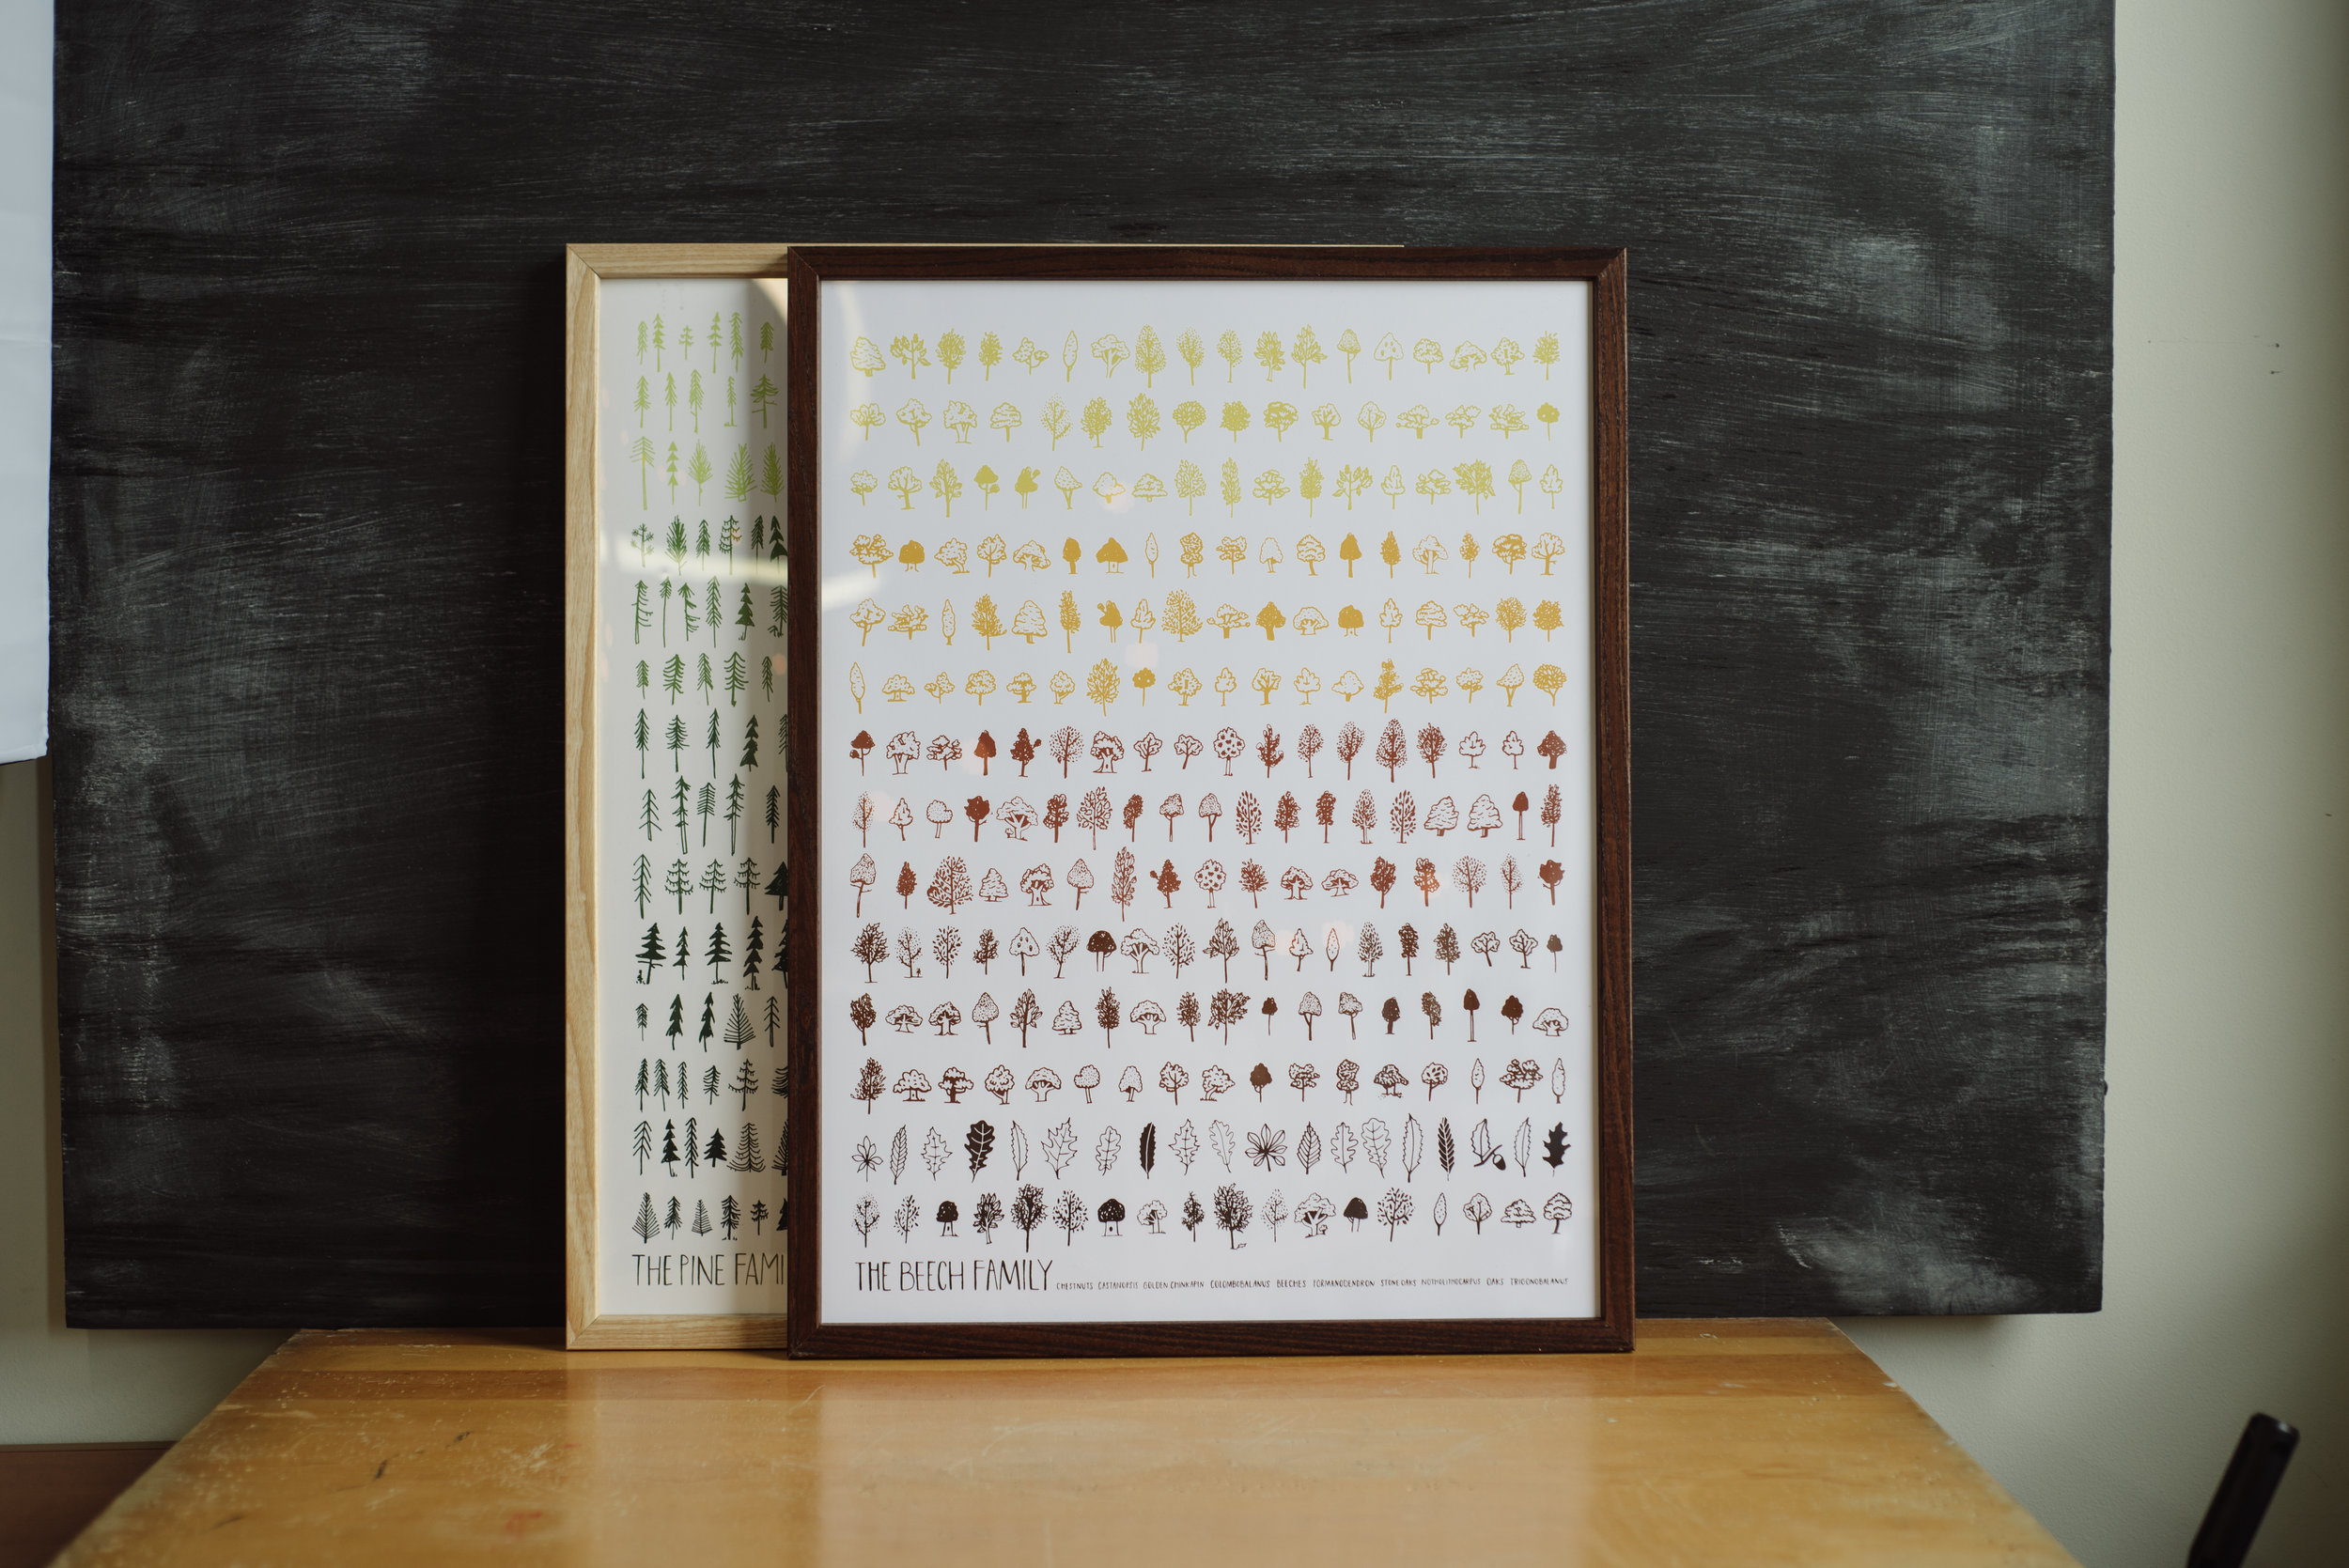 THE PINE FAMI
THE BEECH FAMILY CHESTNUTS CASTANOPSIS GOLDEN CHINKAPIN COLOMBOBALANUS BEECHES FORMANODENDRON STONE OAKS NOTHOLITHOCARPUS OAKS TRIGONOBALANUS